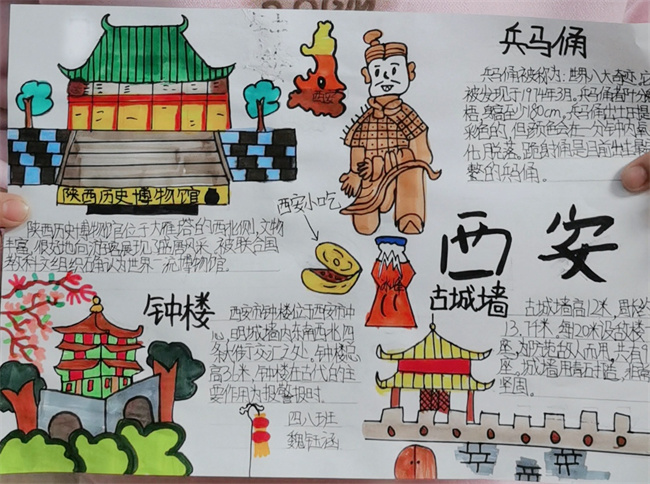 兵马俑
兵马俑被称为:世界八大奇迹,它
被发现于1974年3月。兵马俑都十分
180cm,兵马俑出土时是
彩色的,但颜色会在一分钟内氧
化脱落。跪射俑是目前出土最
整的兵马俑。
西安
陕西历史博物馆
陕西历史博物馆位于大雁塔的西北侧,文物
丰富,很好地向游客展现了强唐风采,被联合国
教科文组织确认为世界一流博物馆。
西安小吃
冰峰
西安
古城墙
古城墙高12米,
13.7千米,每120米设敌楼一
座,为防范敌人而用,共有
座,城墙用青砖打造,
坚固。
钟楼
西安市钟楼位于西安市中
心,明城墙内东南西北四
条大街交汇之处,钟楼总
高36米,钟楼在古代的主
要作用为报警报时。
四八班
魏钰涵